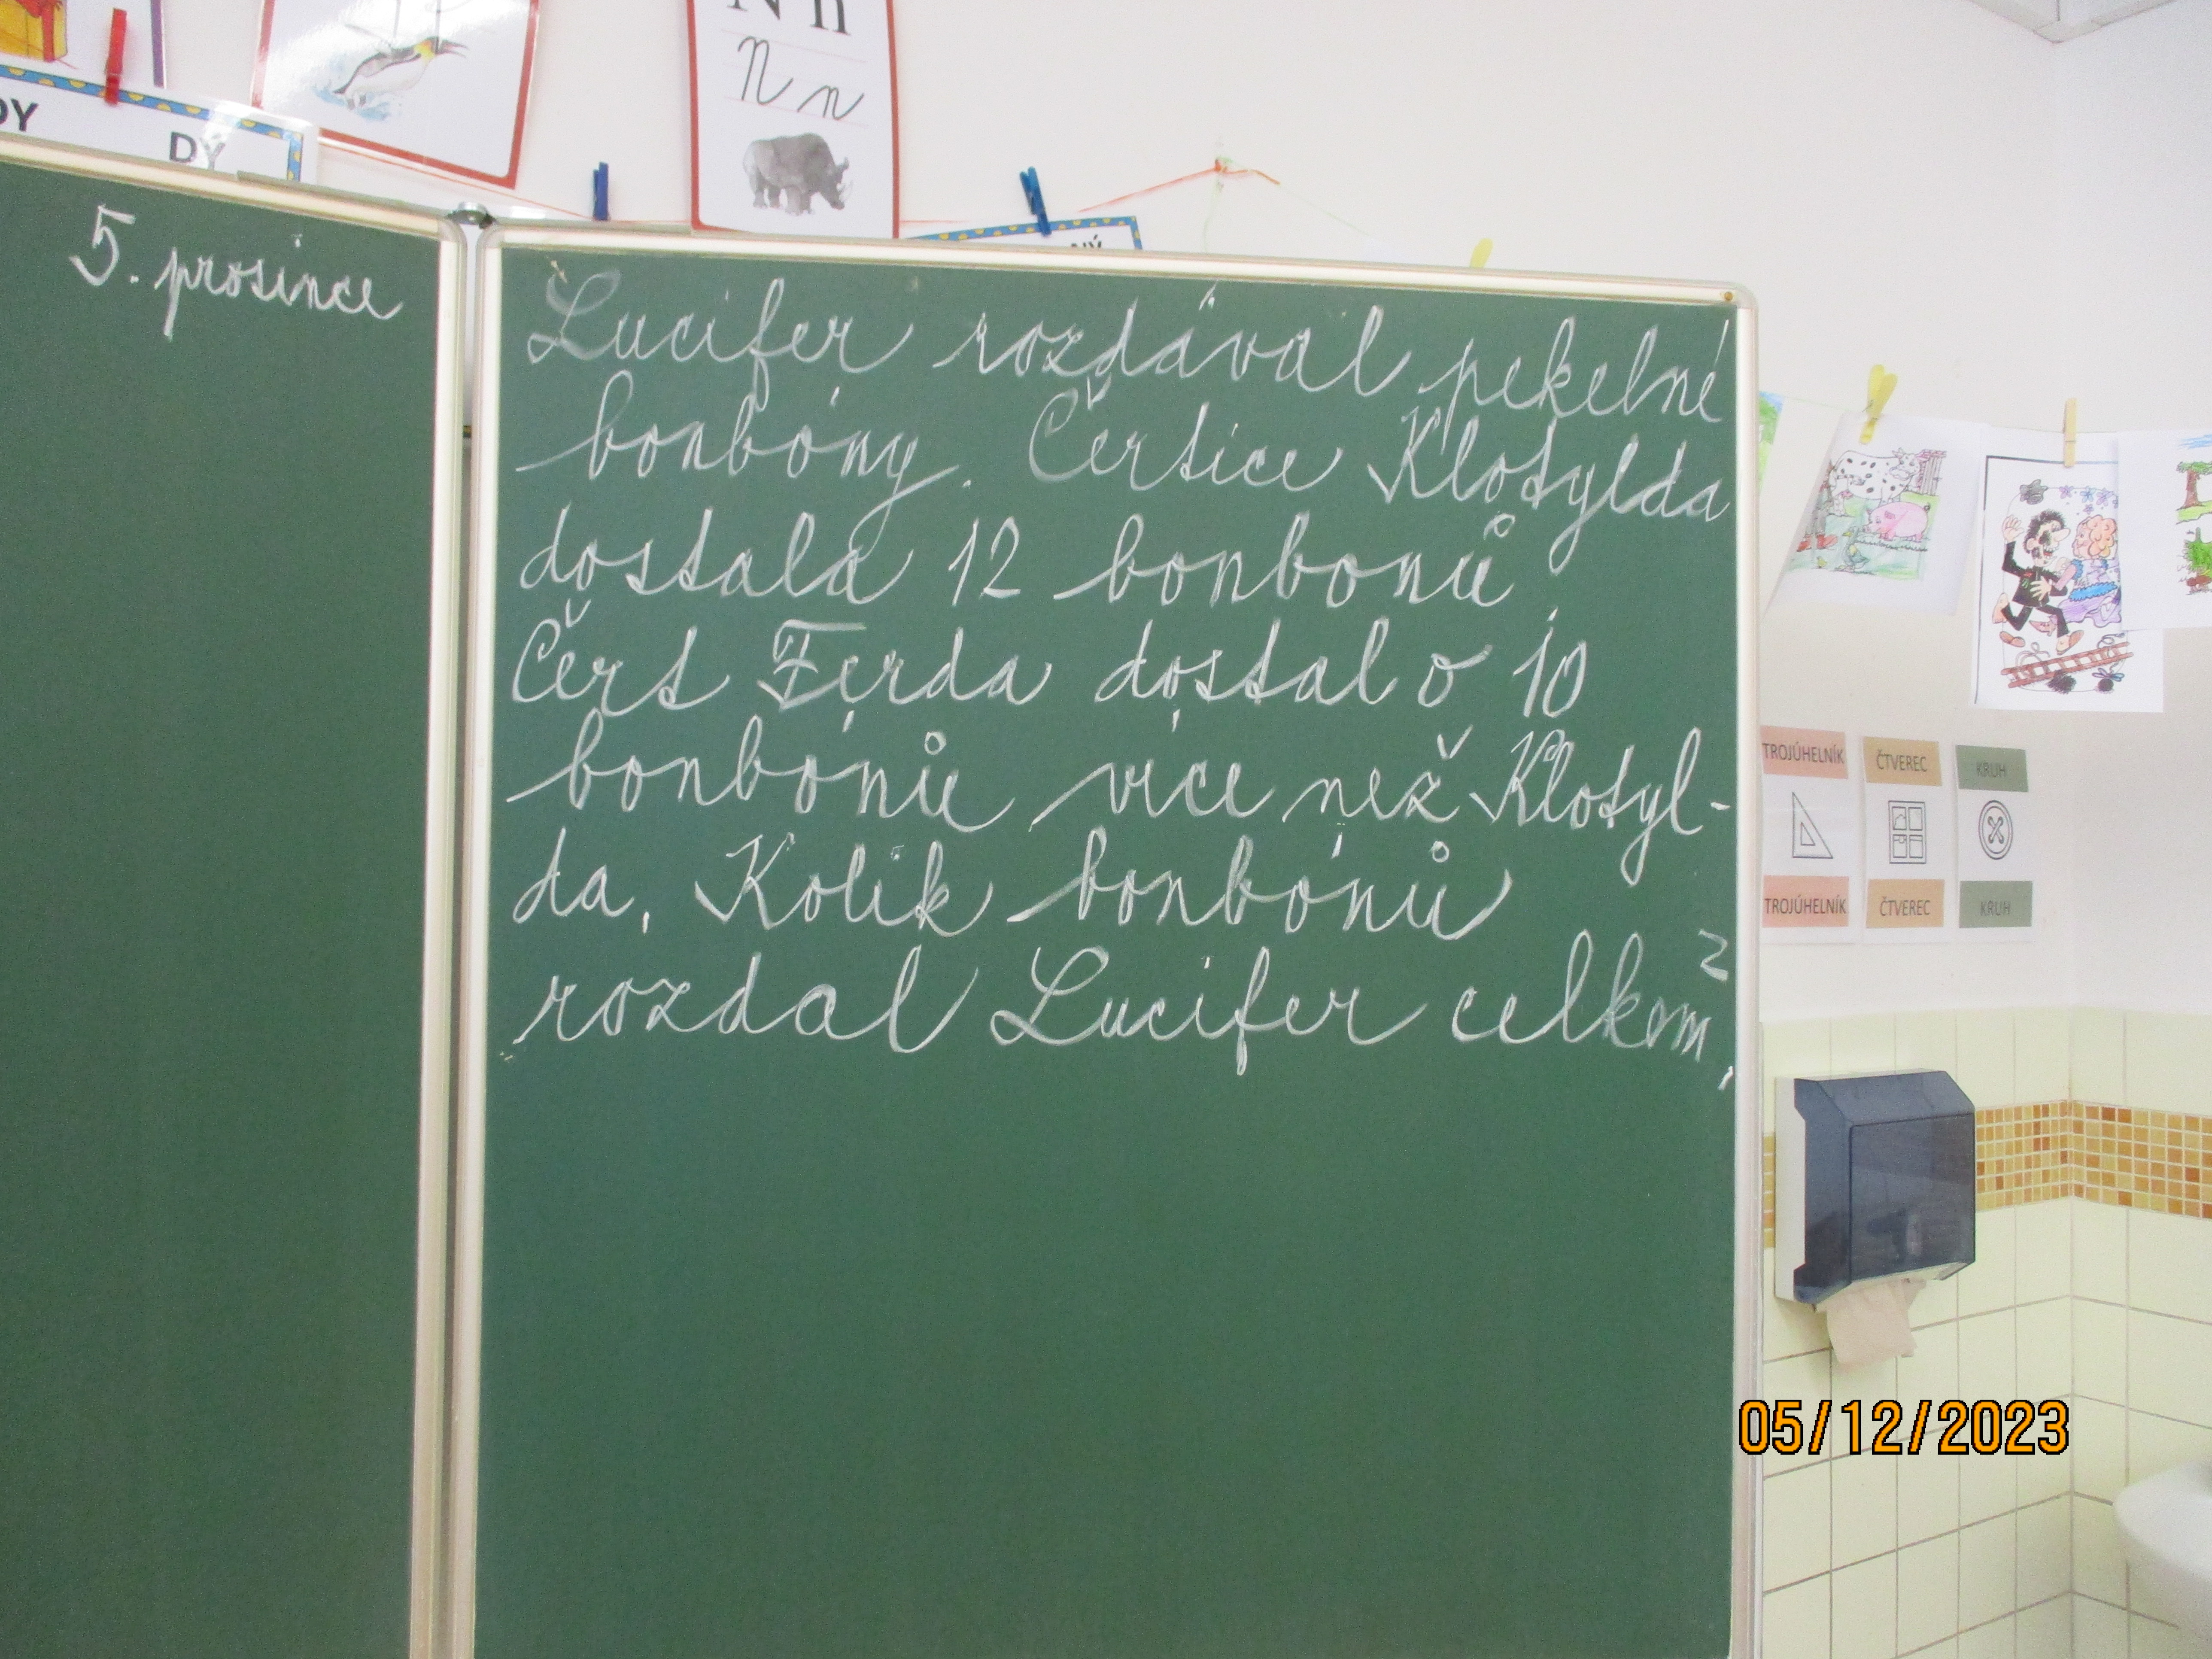 N n
N n
DY
DY
NÝ
5. prosince
Lucifer rozdával pekelné
bonbóny. Čertice Klotylda
dostala 12 bonbonů.
Čert Ferda dostal o 10
bonbónů více než Klotyl-
da. Kolik bonbónů
rozdal Lucifer celkem?
TROJÚHELNÍK
ČTVEREC
KRUH
TROJÚHELNÍK
ČTVEREC
KRUH
05/12/2023